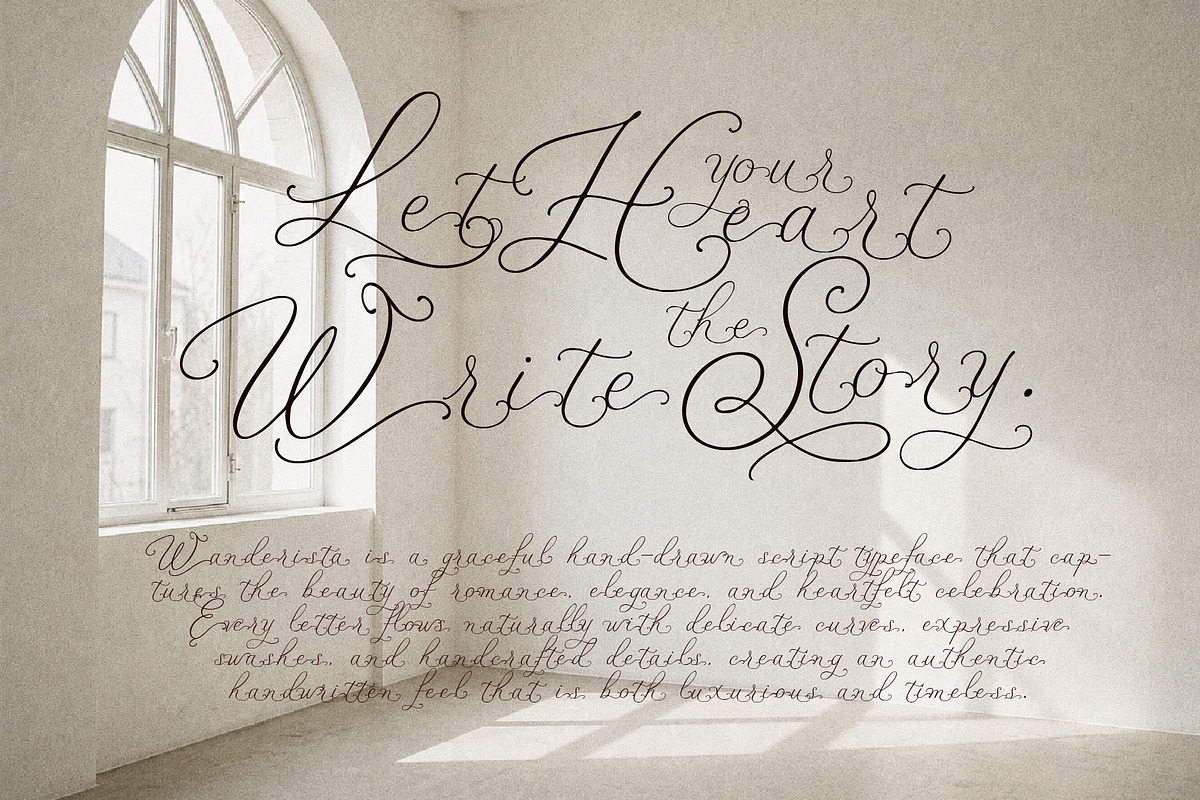 Let your Heart
Write the Story.
Wanderista is a graceful hand-drawn script typeface that cap-
tures the beauty of romance, elegance, and heartfelt celebration.
Every letter flows naturally with delicate curves, expressive
swashes, and handcrafted details, creating an authentic
handwritten feel that is both luxurious and timeless.